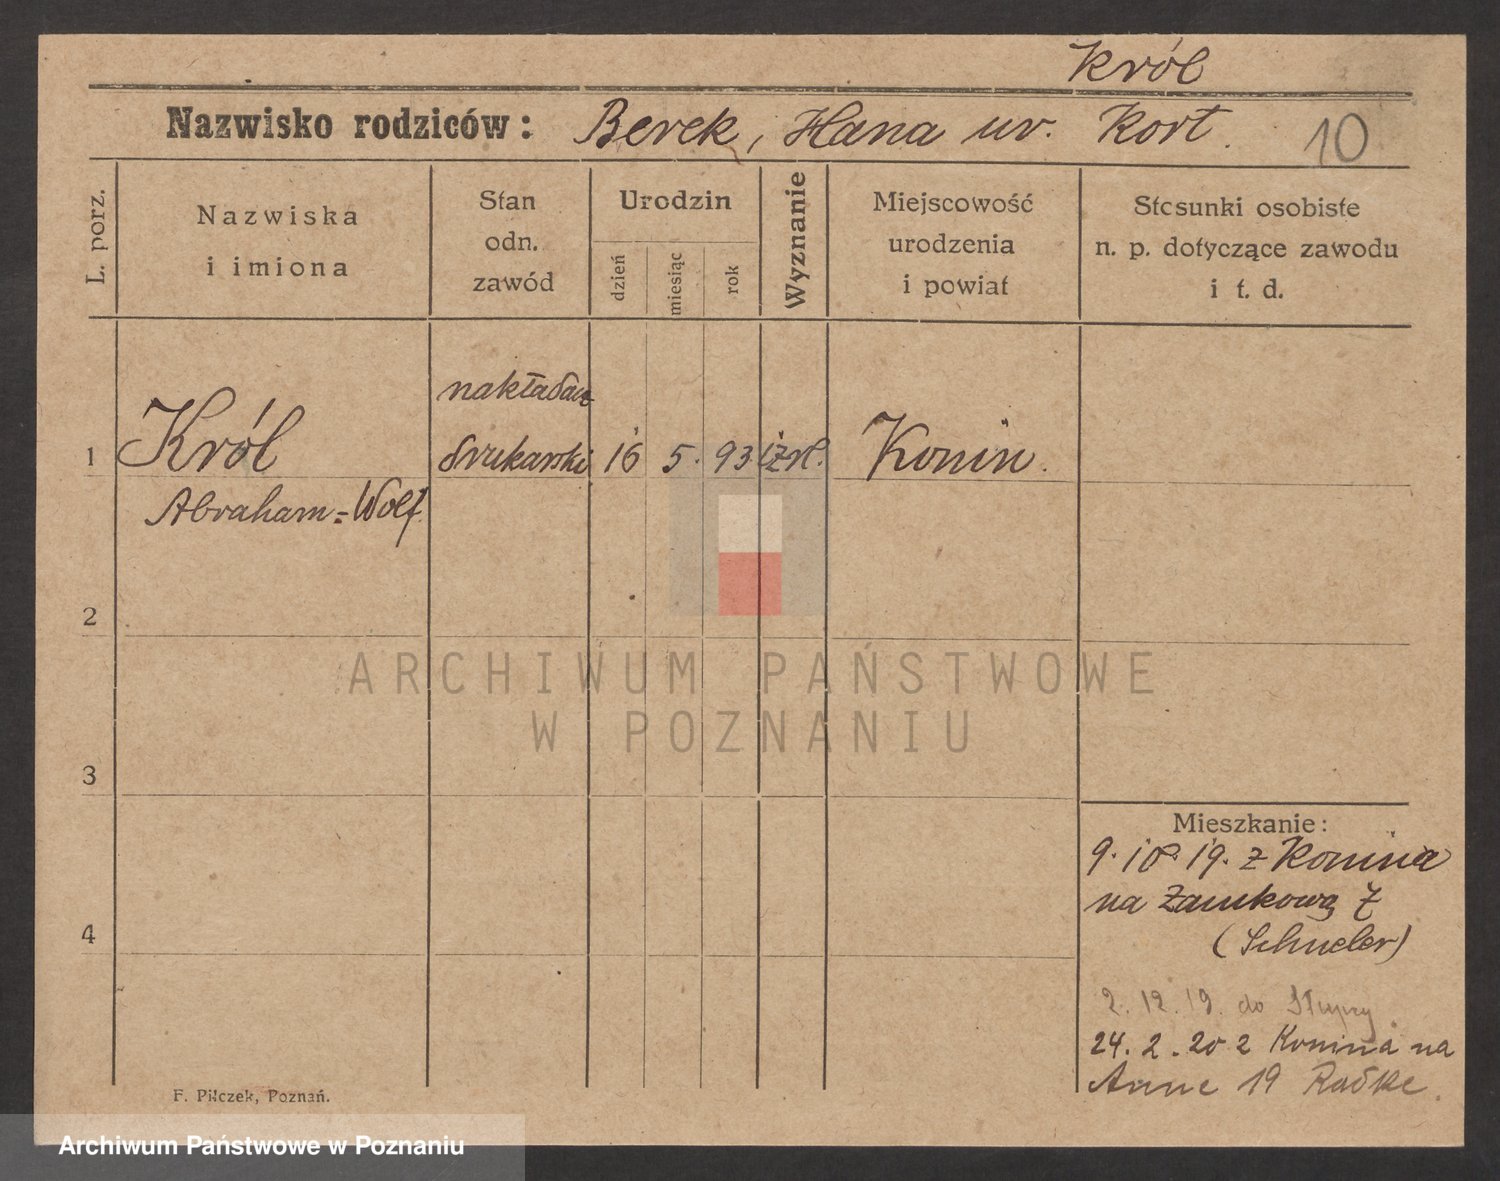 Król
Nazwisko rodziców: Berek, Hana ur. Kort.
10
L. porz.
Nazwiska
i imiona
Stan
odn.
zawód
Urodzin
dzień
miesiąc
rok
Wyznanie
Miejscowość
urodzenia
i powiat
Stosunki osobiste
n. p. dotyczące zawodu
i t. d.
1
Król
Abraham=Wolf
nakładacz
drukarski
16
5.
93
izrl.
Konin.
2
3
4
Mieszkanie:
9. 10. 19. z Konina
na Zamkową 7
(Schneler)
2. 12. 19. do Słupcy.
24. 2. 20 z Konina na
19 Radke.
F. Pilczek, Poznań.
ARCHIWUM PAŃSTWOWE
W POZNANIU
Archiwum Państwowe w Poznaniu